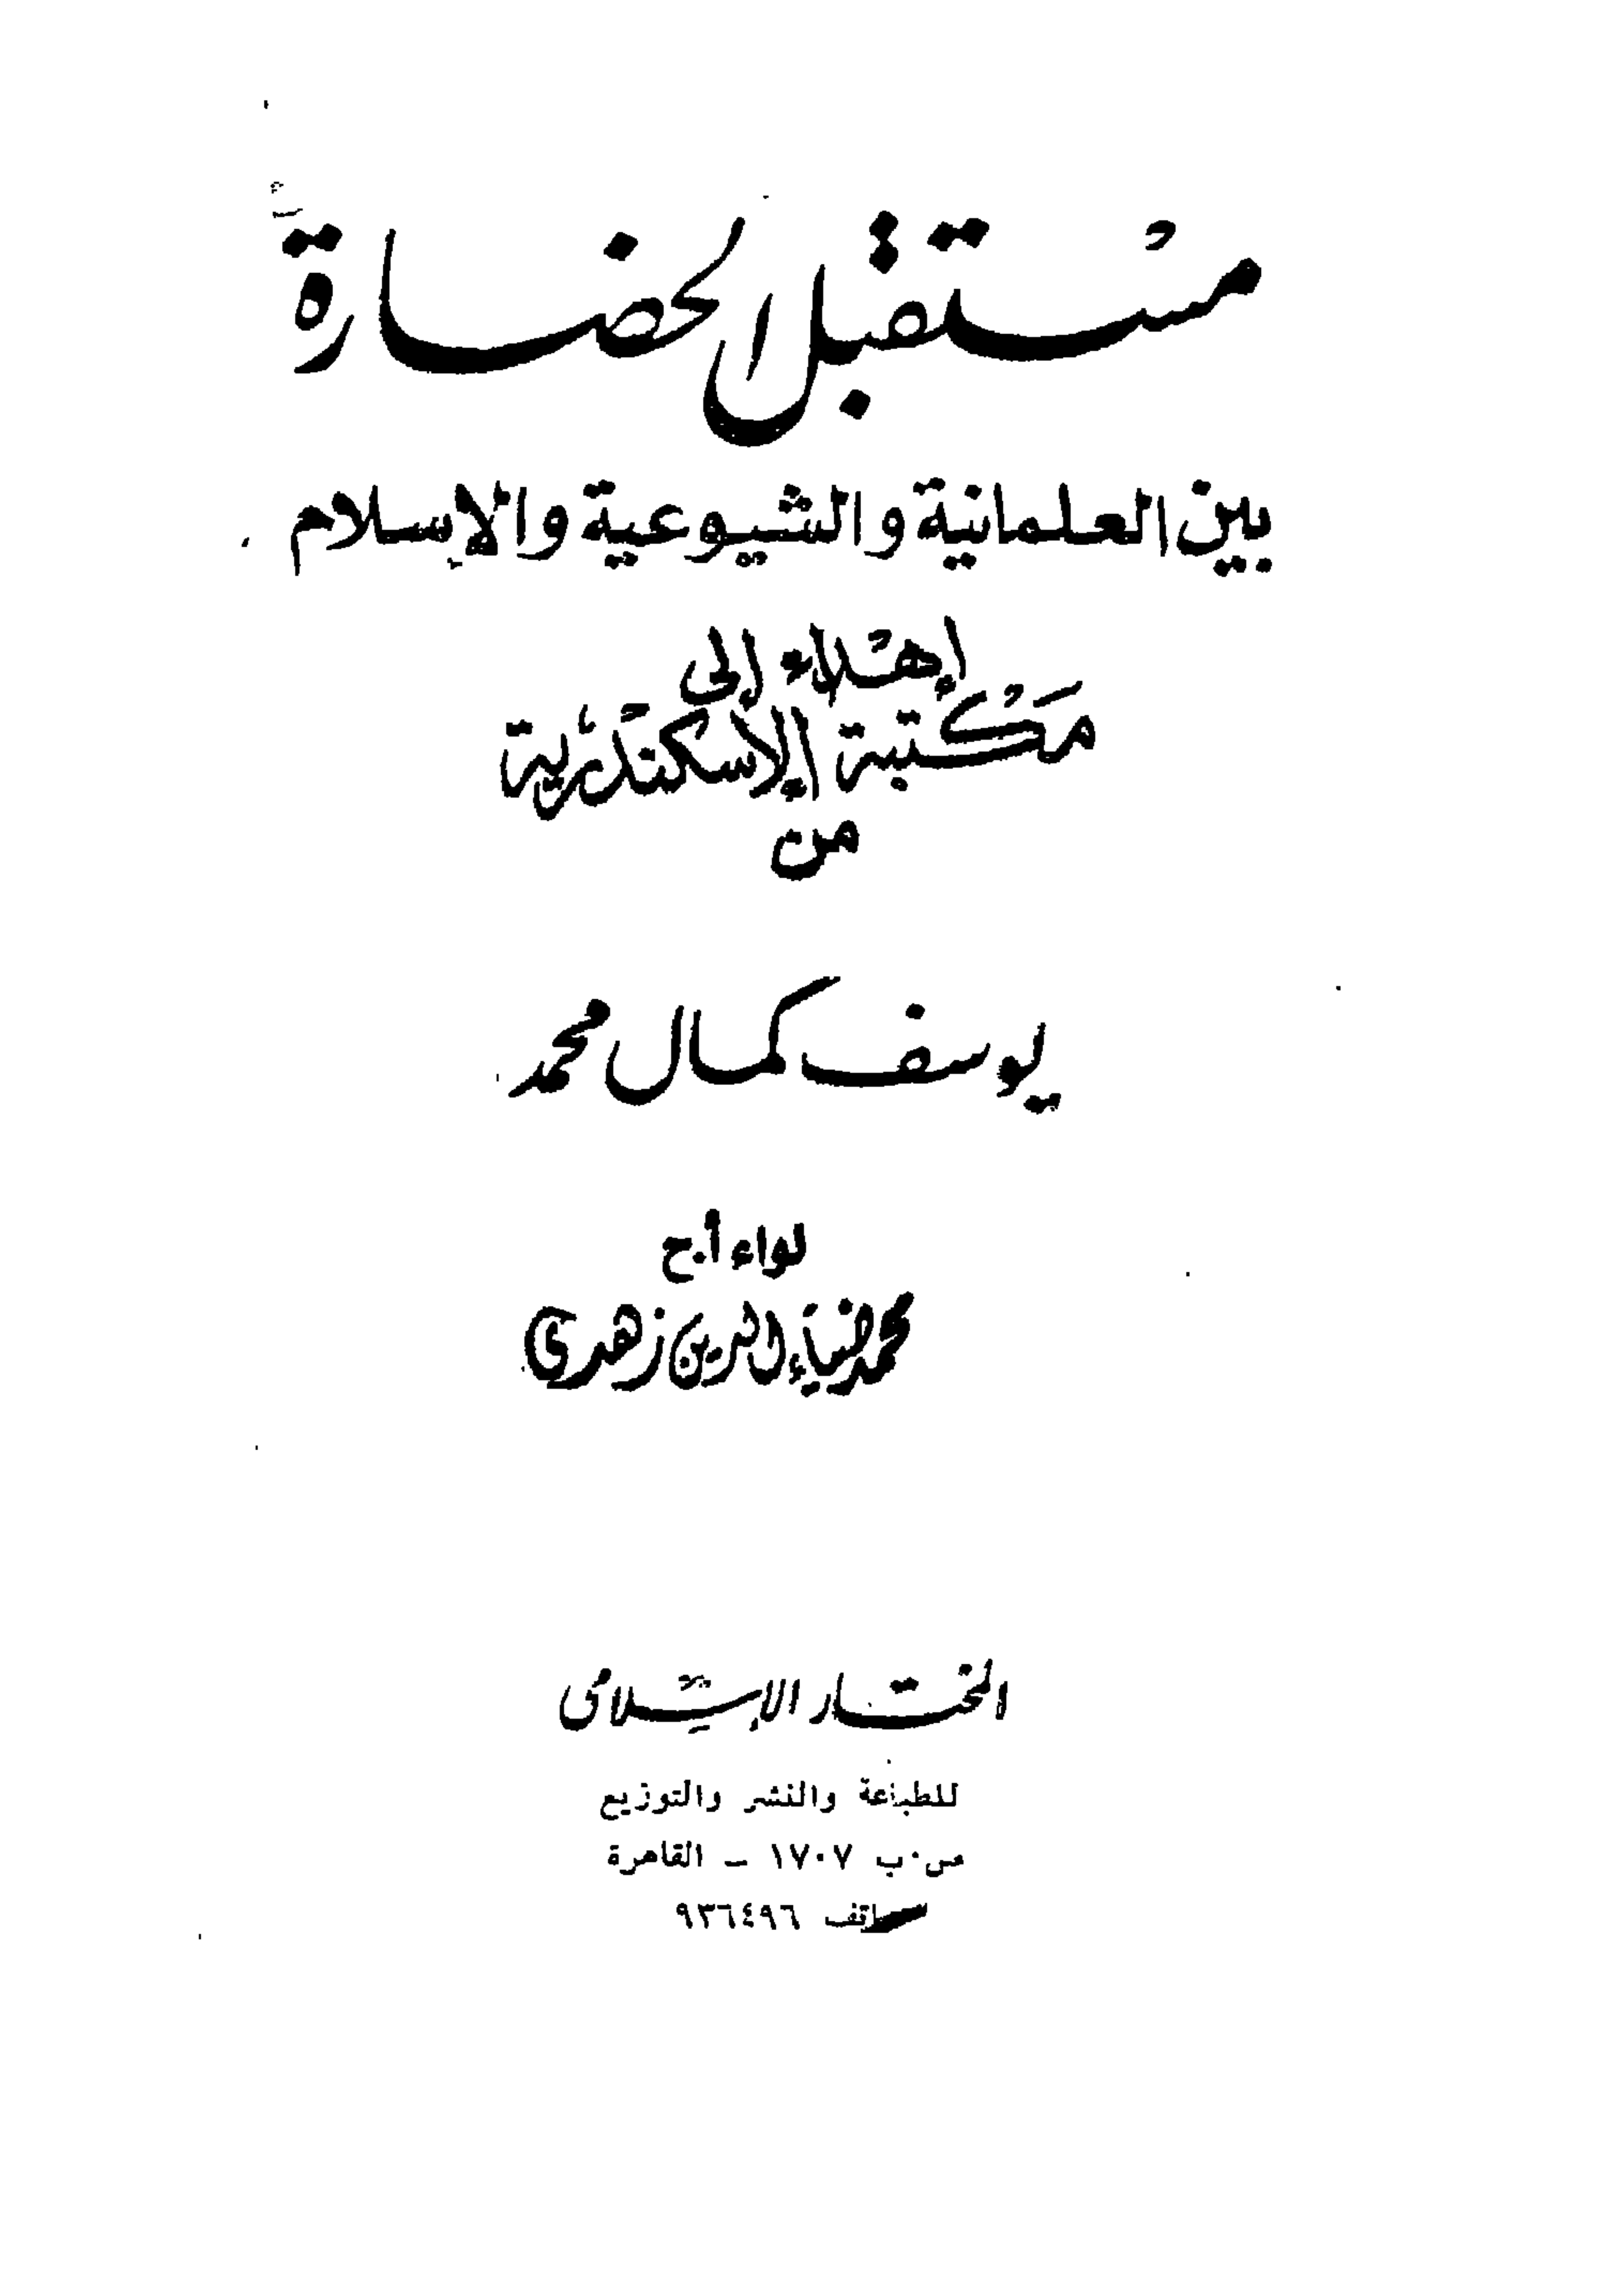 مستقبل الحضارة
بين العلمانية والشيوعية والإسلام
إهداء إلى
مكتبة الإسكندرية
من
يوسف كمال محمد
لواء أ.ح
محمد ضياء الدين زهدى
المختار الإسلامى
للطباعة والنشر والتوزيع
ص.ب ١٧٠٧ – القاهرة
هاتف ٩٣٦٤٩٦